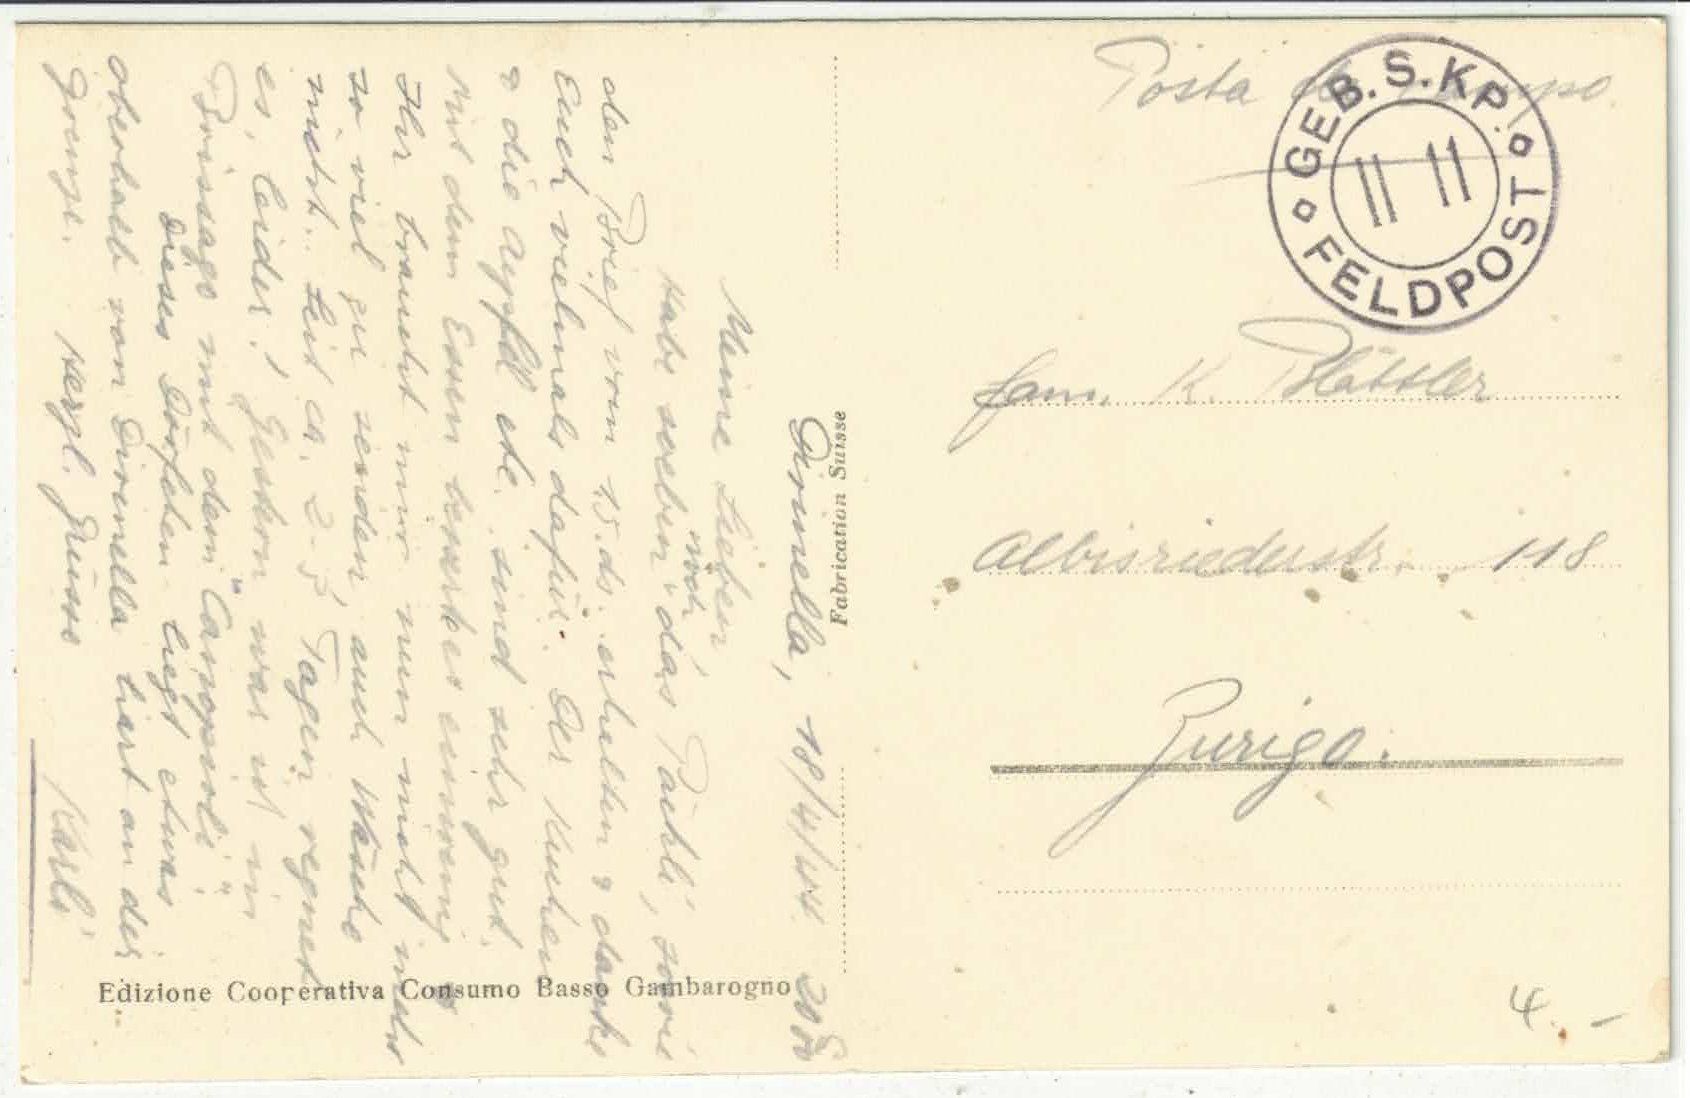 Dirinella, 18/4/44 20⁰⁰
Meine Lieben
Habe soeben noch das Päckli, sowie
den Brief vom 15. ds. erhalten & danke
Euch vielmals dafür. Der Kuchen
& die Äpfel etc. sind sehr gut.
Mit dem Essen
Ihr braucht mir nun nicht mehr
so viel zu senden, auch Wäsche
nicht. Seit ca. 2-3 Tagen regnet
es, leider! Gestern war ich in
Brissago mit dem "Canopeoli".
Dieses Dörfchen liegt etwas
oberhalb von Dirinella hart an der
Grenze. Herzl. Grüsse
Karli
Edizione Cooperativa Consumo Basso Gambarogno
Fabrication Suisse
Posta da Campo
GEB. S. KP.
II II
FELDPOST
Fam. K. Blättler
Albisriederstr. 118
Zurigo.
4.-